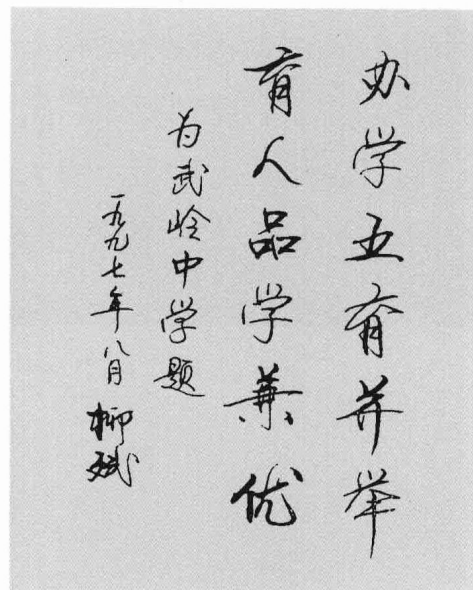 办学五育并举
育人品学兼优
为武岭中学题
一九九七年八月 柳斌